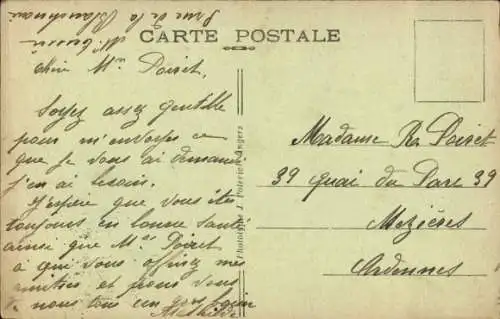 CARTE POSTALE
Chère Mme Poiret,
Soyez assez gentille
pour m'envoyer ce
que je vous ai demandé
j'en ai besoin.
J'espère que vous êtes
toujours en bonne santé
ainsi que Mr Poiret
à qui vous offrirez mes
amitiés et pour vous
nous tous un gros
rue de la Blanchisserie
Phototypie J. Angers
Madame Poiret
39 Quai du Parc 39
Mezières
Ardennes